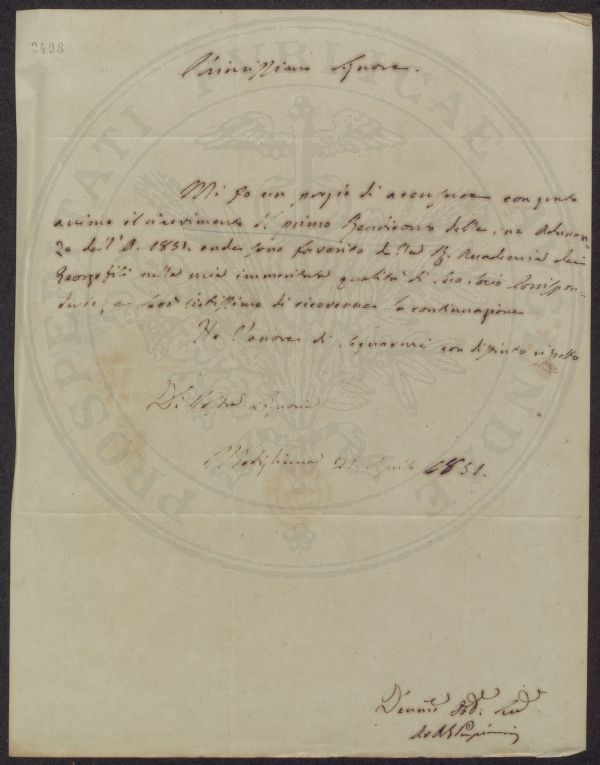 3498
PROSPERITATI PUBLICAE AUGENDAE
Chiarissimo Signore.
Mi fo un pregio di accusare con grato
animo il ricevimento del primo Rendiconto delle sue Adunan-
ze dell'A. 1851. onde sono favorito dalla R. Accademia dei
Georgofili nella mia immeritata qualità di Suo Socio Corrispon-
dente, e sarò lietissimo di riceverne la continuazione
Ho l'onore di segnarmi con distinto rispetto
Di Vostra Signoria
Modigliana 21 Aprile 1851.